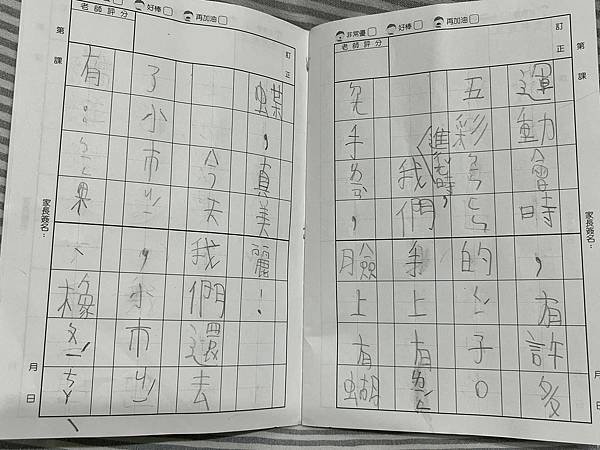 非常優 好棒 再加油
老師評分
訂正
第 課
家長簽名：
月 日
運動會時，有許多
五彩 的 子。
進場時，
我們手上有
手 ，臉上有蝴
好棒 再加油
老師評分
訂正
第 課
家長簽名：
月 日
蝶，真美麗！
今天我們還去
了小市ㄐㄧˊ，小市ㄐㄧˊ
有： 果、橡